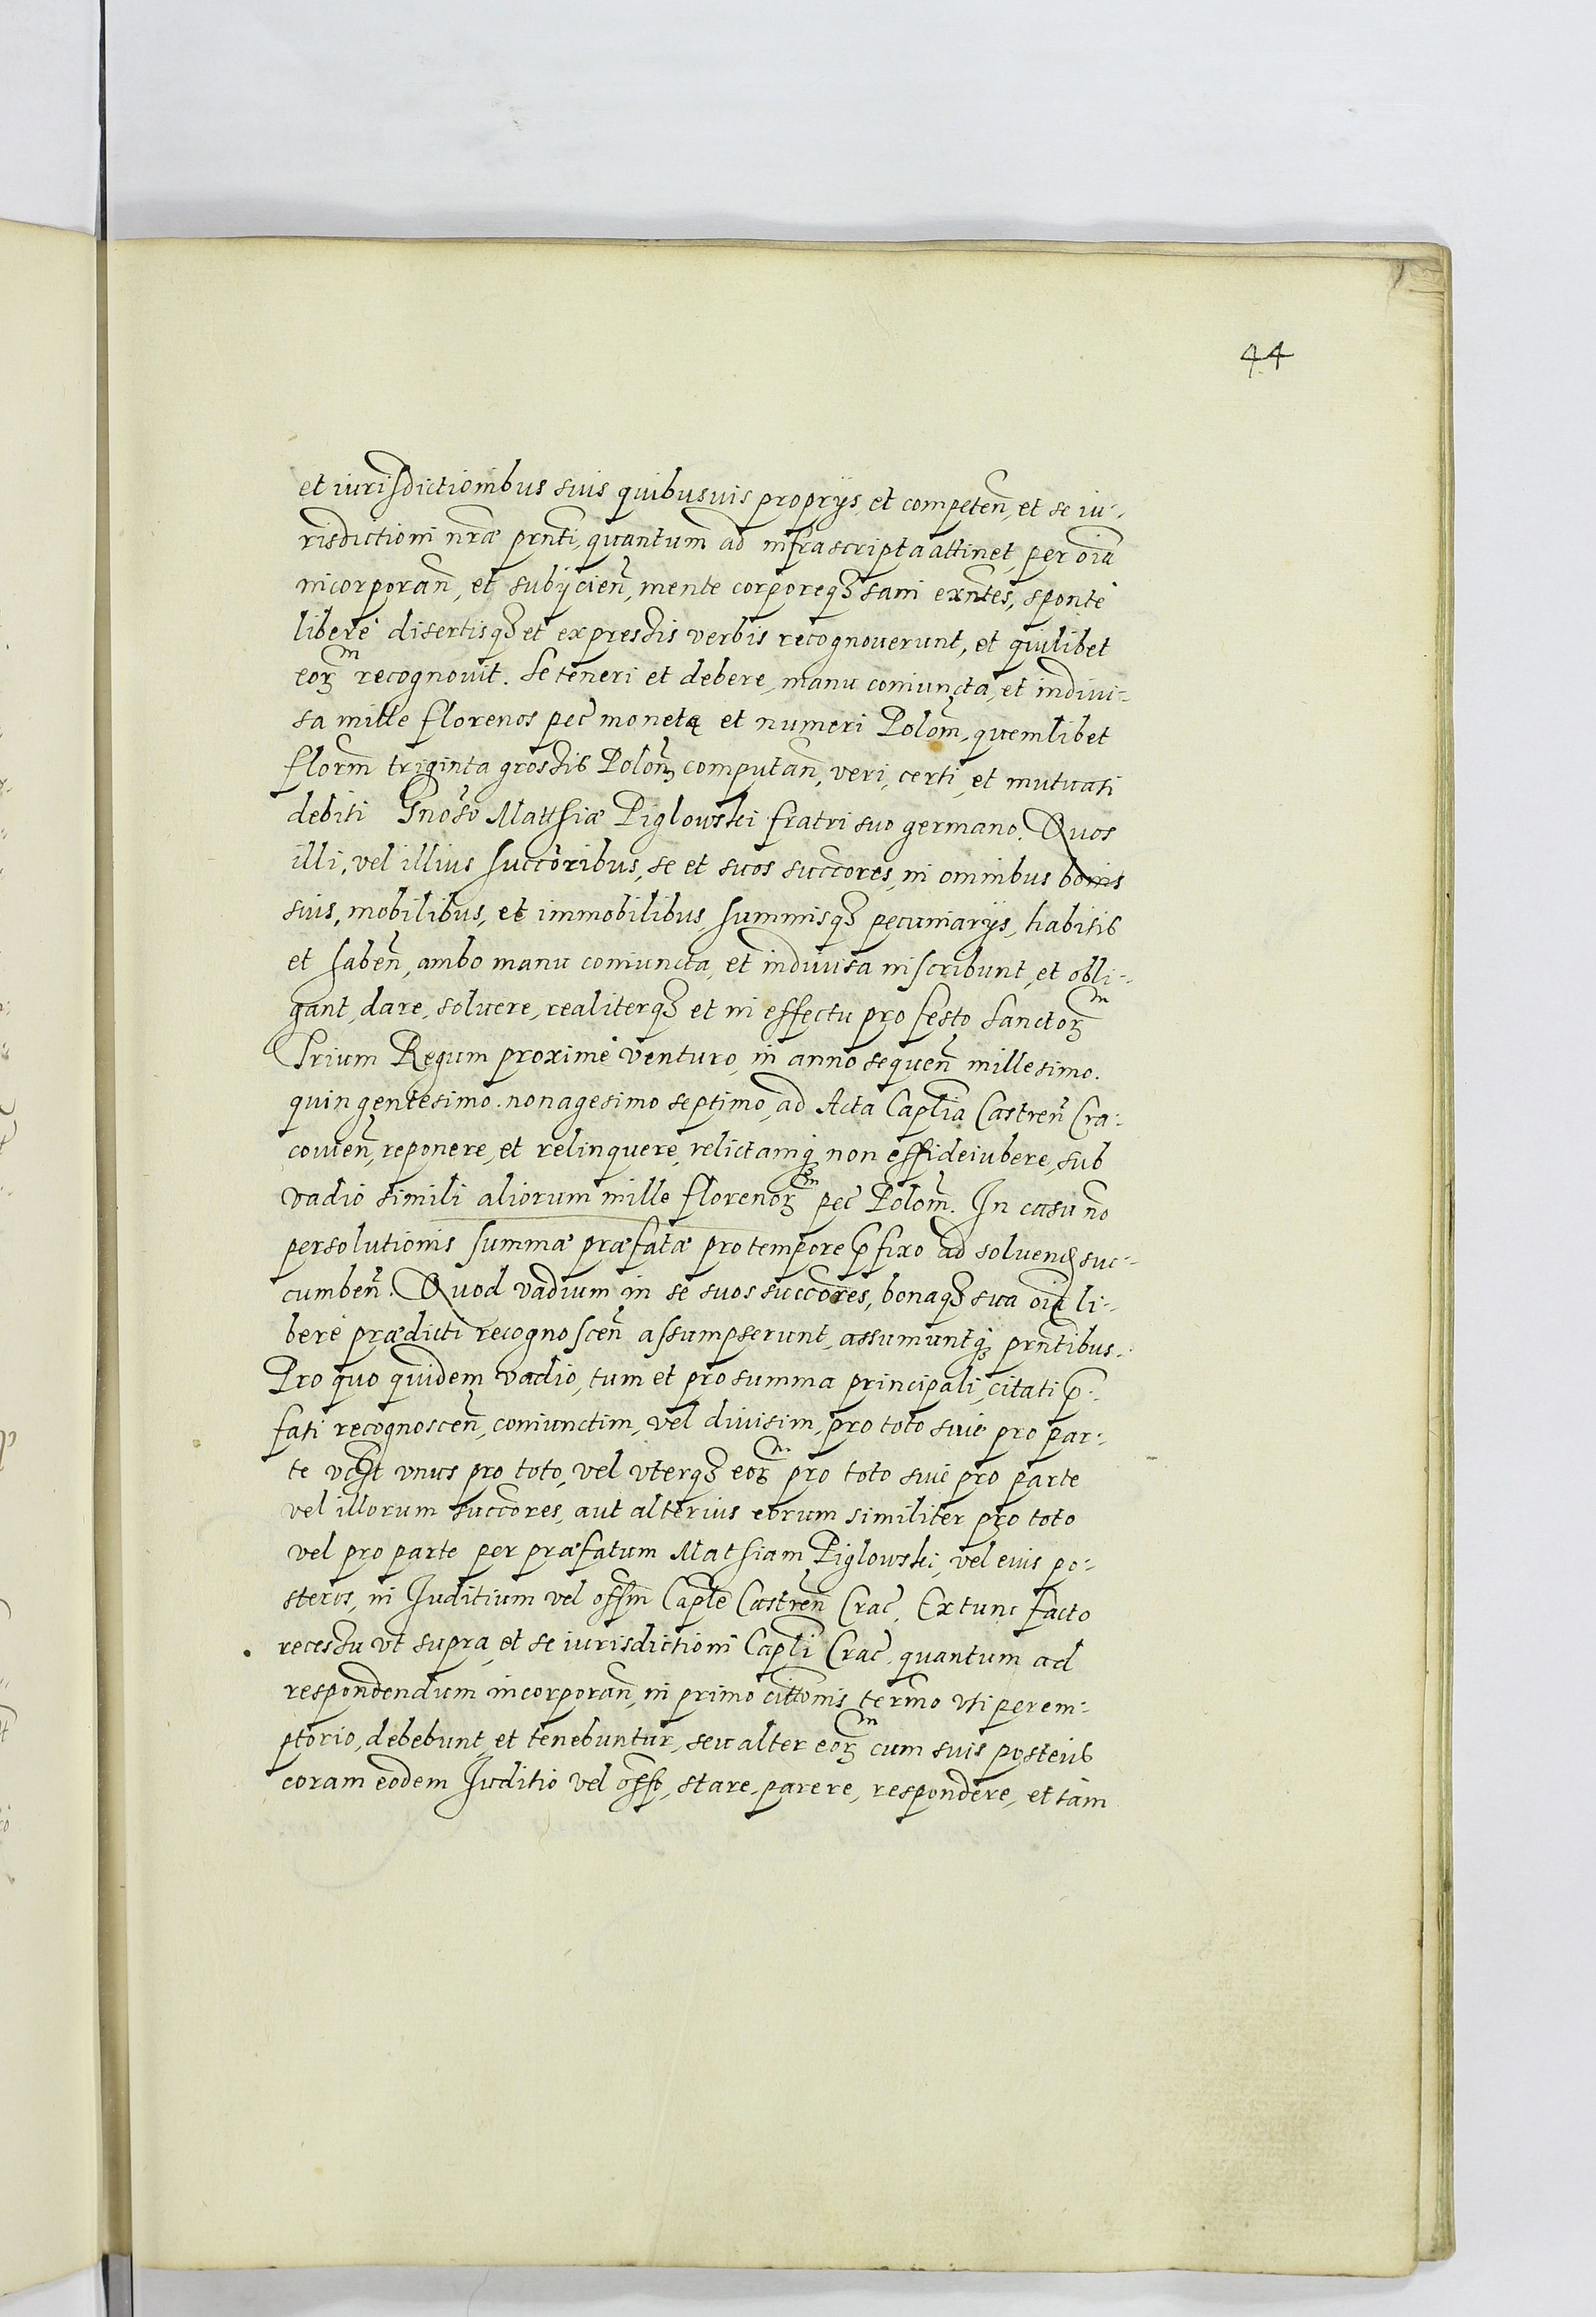 44
et iurisdictionibus suis quibusuis proprijs, et competen̄, et se iu-
risdictioni nr̄æ prn̄ti, quantum ad infrascripta attinet, per oīa
incorporan̄, et subijcien̄, mente corporeqȝ sani exn̄tes, sponte
libere disertisqȝ et expressis verbis recognouerunt, et quilibet
eoꝝ recognouit. Se teneri et debere, manu coniuncta, et indiui-
sa mille florenos pec̄ monetę et numeri Polon̄, quemlibet
florn̄ triginta grossis Polon̄ computan̄, veri, certi, et mutuati
debiti Gnōso Matthiæ Piglowski fratri suo germano. Quos
illi, vel illius succōribus, se et suos succōres, in omnibus bonis
suis, mobilibus, et immobilibus, summisqȝ pecuniarijs, habitis
et haben̄, ambo manu coniuncta, et indiuisa inscribunt, et obli-
gant, dare, soluere, realiterqȝ et in effectu pro festo Sanctoꝝ
Trium Regum proxime venturo, in anno sequen̄ millesimo.
quingentesimo. nonagesimo septimo, ad Acta Caplīa Castren̄ Cra-
couien̄, reponere, et relinquere, relictamqȝ non effideiubere, sub
vadio simili aliorum mille florenoꝝ pec̄ Polon̄. In casu nō
persolutionis summæ præfatæ pro tempore p̄fixo ad soluend̄ suc-
cumben̄. Quod vadium in se suos succōres, bonaqȝ sua oīa li-
bere prædicti recognoscen̄ assumpserunt, assumuntqȝ prn̄tibus.
Pro quo quidem vadio, tum et pro summa principali, citati p̄-
fati recognoscen̄, coniunctim, vel diuisim, pro toto siue pro par-
te vnus pro toto, vel vterqȝ eoꝝ pro toto siue pro parte
vel illorum succōres, aut alterius eorum similiter pro toto
vel pro parte per præfatum Mathiam Piglowski, vel eius po-
steros, in Iuditium vel offm̄ Caplē Castren̄ Crac̄. Ex tunc facto
recessu vt supra, et se iurisdictioni Capli Crac̄. quantum ad
respondendum incorporan̄, in primo citt̄onis termo vti perem-
ptorio, debebunt, et tenebuntur, seu alter eoꝝ cum suis posteris
coram eodem Iuditio vel offō, stare, parere, respondere, et tam